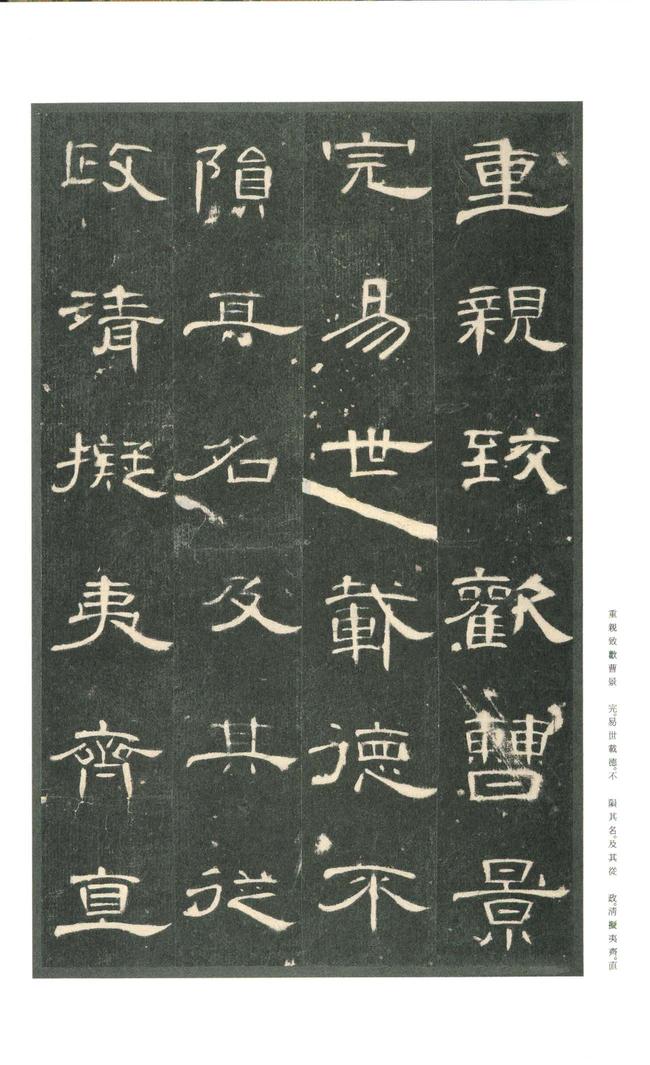 重親致歡曹景
完易世載德不
隕其名及其從
政清擬夷齊直
重親致歡曹景　完。易世載德。不　隕其名。及其從　政。清擬夷齊。直